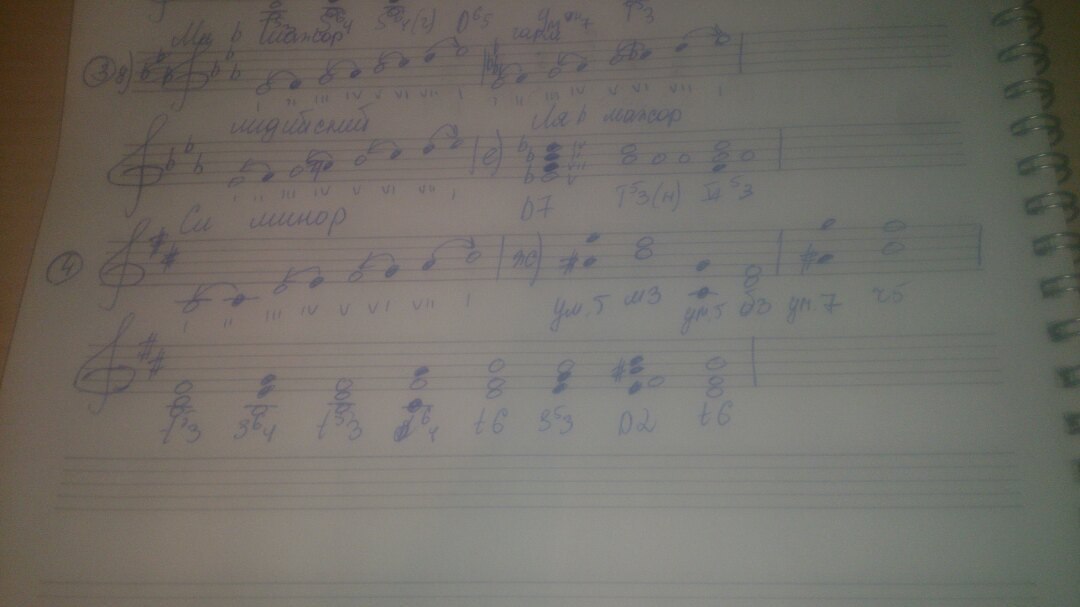 D65
Ми b мажор гарм
3 в)
I II III IV V VI VII I I II III IV V VI VII I
лидийский Ля b мажор
е)
I II III IV V VI VII I D7 T53(н) VI53
Си минор
4 ж)
I II III IV V VI VII I ум.5 м3 ум.5 б3 ум.7 ч5
t53 S64 t53 64 t6 S53 D2 t6